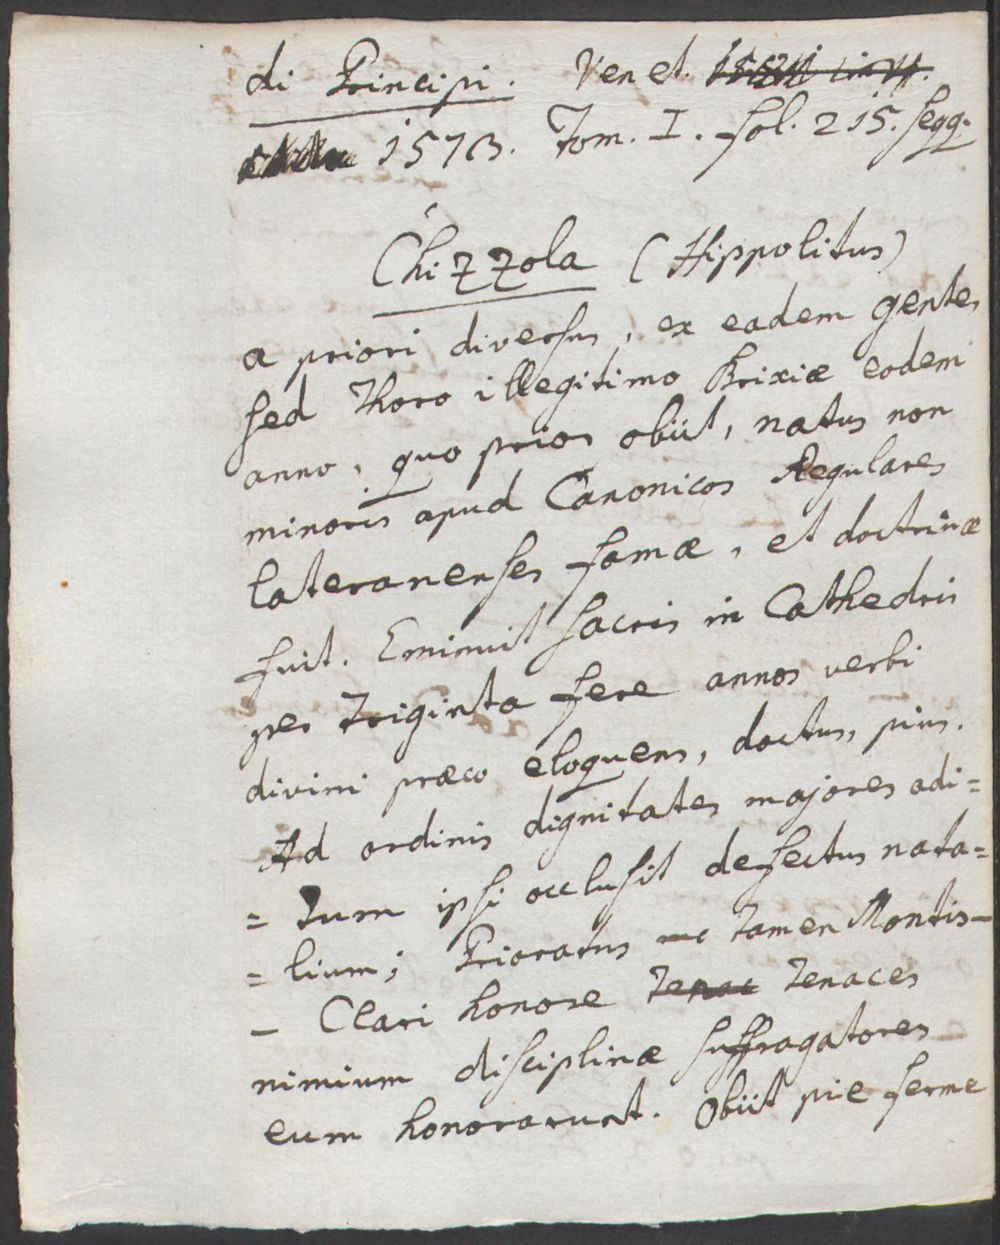 di Principi. Venet.
1573. Tom. I. fol. 215. seqq.
Chizzola (Hippolitus)
a priori diversus, ex eadem gente,
sed Thoro illegitimo Brixiæ eodem
anno, quo prior obiit, natus non
minoris apud Canonicos Regulares
lateranenses famæ, et doctrinæ
fuit. Eminuit sacris in Cathedris
per triginta fere annos verbi
divini præco eloquens, doctus, pius.
Ad ordinis dignitates majores adi=
=tum ipsi occlusit defectus nata=
=lium; Prioratus tamen Montis-
- Clari honore tenaces
nimium disciplinæ suffragatores
eum honorarunt. Obiit pie ferme